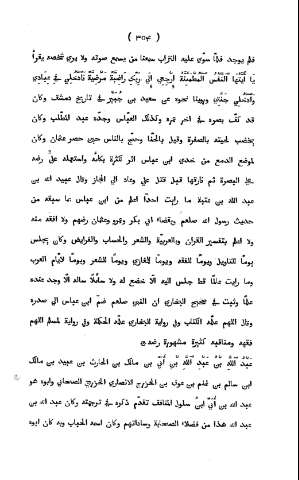 ( ٣٥٤ )
فلم يوجد فلمّا سوّى عليه التراب سمعنا من يسمع صوته ولا يرى شخصه يقرأ
يا أيّتها النفس المطمئنّة ارجعى إلى ربّك راضية مرضيّة فادخلى فى عبادى
وادخلى جنّتى وروينا نحوه عن سعيد بن جُبَيْر فى تاريخ دمشق وكان
قد كُفّ بصره فى آخر عمره وكذلك العبّاس وجدّه عبد المطّلب وكان
يخضب لحيته بالصفرة وقيل بالحنّاء وحجّ بالناس حين حصر عثمان وكان
لموضع الدمع من خدّى ابن عباس اثر لكثرة بكائه واستعمله علىّ رضه
على البصرة ثم فارقها قبل قتل علىّ وعاد الى الحجاز وقال عبيد الله بن
عبد الله بن عتبة ما رايت احدا اعلم من ابن عباس بما سبقه من
حديث رسول الله صلعم وبقضاء ابى بكر وعمر وعثمان رضهم ولا افقه منه
ولا اعلم بتفسير القران وبالعربيّة والشعر والحساب والفرايض وكان يجلس
يومًا للتاويل ويومًا للفقه ويومًا للمغازى ويومًا للشعر ويومًا لايّام العرب
وما رايت عالمًا قطّ جلس اليه الّا خضع له ولا سائلا ساله الّا وجد عنده
علمًا وثبت فى صحيح البخارى انّ النبى صلعم ضمّ ابن عباس الى صدره
وقال اللهم علّمه الكتاب وفى رواية للبخارى علّمه الحكمة وفى رواية لمسلم اللهم
فقهه ومناقبه كثيرة مشهورة رضه
عبد الله بن عبد الله بن أُبَىّ بن مالك بن الحارث بن عبيد بن مالك
ابن سالم بن غنم بن عوف بن الخزرج الانصارى الخزرجى الصحابى وابوه هو
عبد الله بن أُبَىّ ابن سلول المنافق تقدّم ذكره فى ترجمته وكان عبد الله بن
عبد الله هذا من فضلاء الصحابة وساداتهم وكان اسمه الحباب وبه كان ابوه